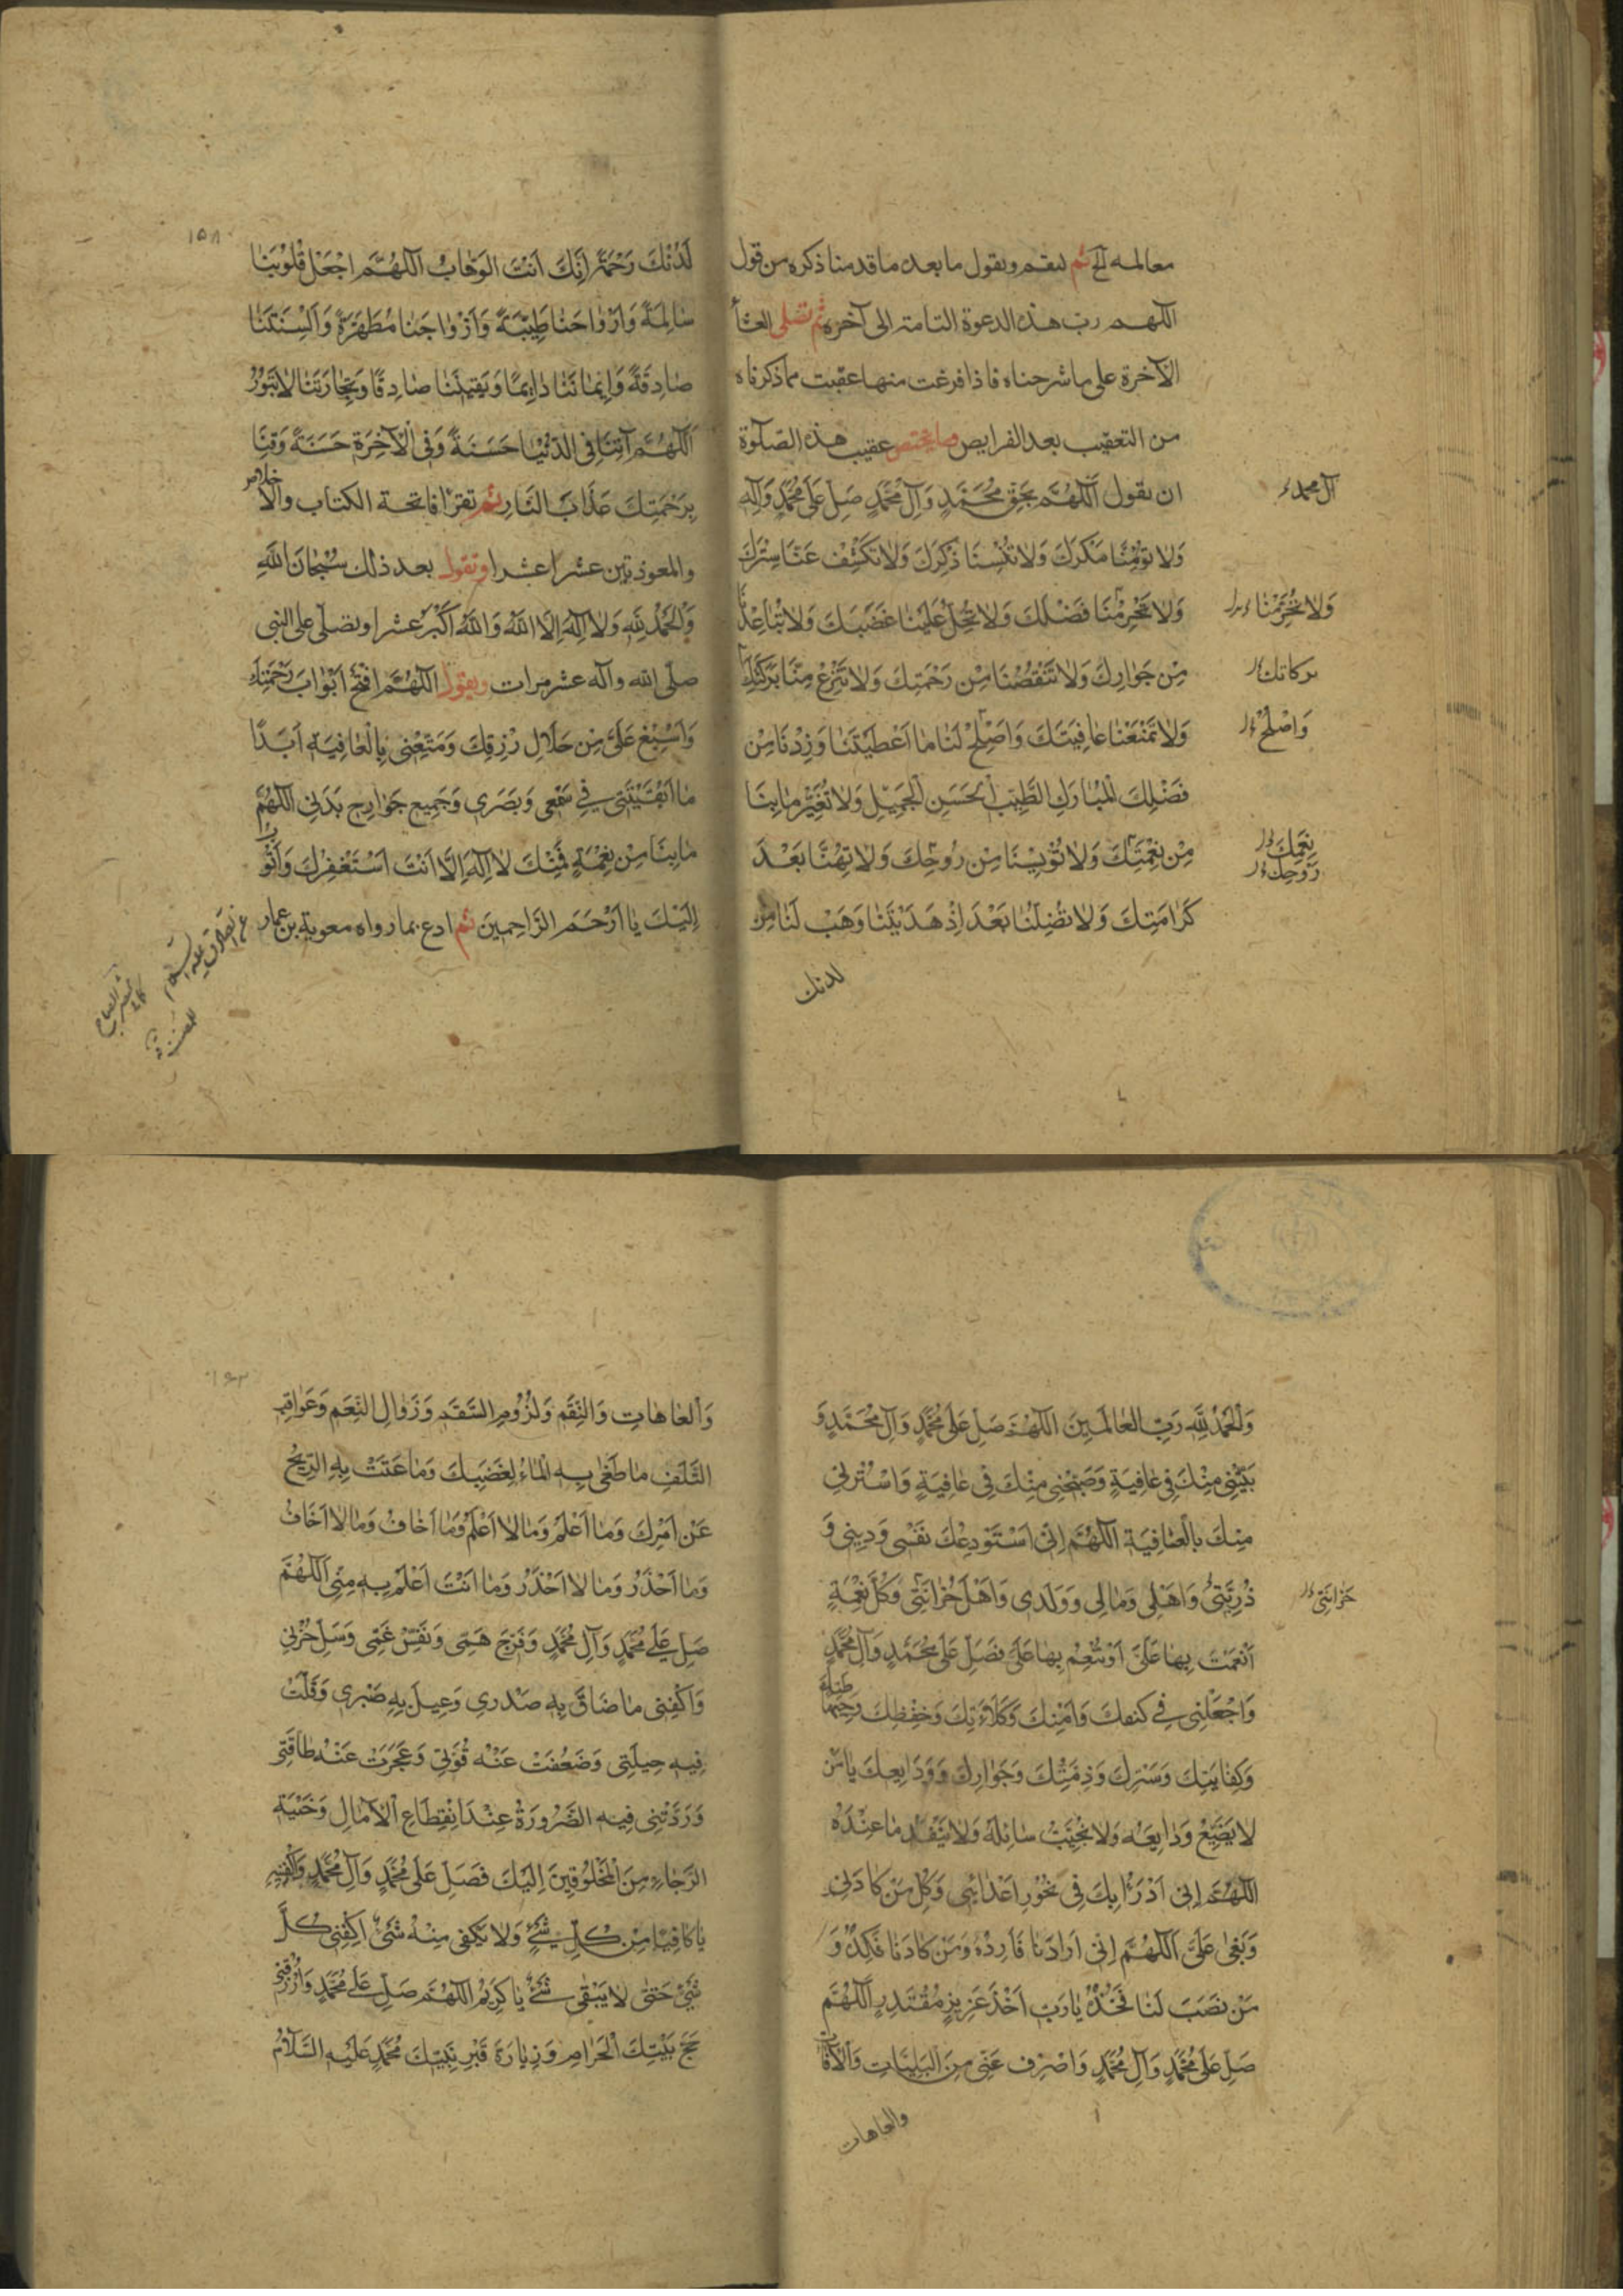 معالمه الخ ثم ليقم ويقول ما بعد ما قدمنا ذكره من قول
اللهم رب هذه الدعوة التامة الى آخره ثم تصلى العشاء
الآخرة على ما شرحناه فاذا فرغت منها عقبت مما ذكرناه
من التعقيب بعد الفرايض ومما يختص عقيب هذه الصلوة
ان يقول اَللّهُمَّ بِحَقِّ مُحَمَّدٍ وَآلِ مُحَمَّدٍ صَلِّ عَلى مُحَمَّدٍ وَآلِهِ
آل محمد
وَلا تُؤْمِنَّا مَكْرَكَ وَلا تُنْسِنَا ذِكْرَكَ وَلا تَكْشِفْ عَنَّا سِتْرَكَ
وَلا تَحْرِمْنَا فَضْلَكَ وَلا تُحِلَّ عَلَيْنا غَضَبَكَ وَلا تُباعِدْنا
وَلا تُحْرِمْنا
مِنْ جَوارِكَ وَلا تَنْقُصْنا مِنْ رَحْمَتِكَ وَلا تَنْزِعْ مِنَّا بَرَكَتَكَ
بركاتك
وَلا تَمْنَعْنا عافِيَتَكَ وَاَصْلِحْ لَنا ما اَعْطَيْتَنا وَزِدْنا مِنْ
وَاصْلِحْ
فَضْلِكَ الْمُبارَكِ الطَّيِّبِ الْحَسَنِ الْجَمِيلِ وَلا تُغَيِّرْ ما بِنا
مِنْ نِعْمَتِكَ وَلا تُؤْيِسْنا مِنْ رَوْحِكَ وَلا تُهِنَّا بَعْدَ
نِعَمِكَ
رَوحِكَ
كَرامَتِكَ وَلا تُضِلَّنا بَعْدَ اِذْ هَدَيْتَنا وَهَبْ لَنا مِن
لدنك
١٥٨
لَدُنْكَ رَحْمَةً اِنَّكَ اَنْتَ الوَهّابُ اَللّهُمَّ اجْعَلْ قُلُوبَنا
سالِمَةً وَاَرْواحَنا طَيِّبَةً وَاَزْواجَنا مُطَهَّرَةً وَاَلْسِنَتَنا
صادِقَةً وَاِيمانَنا دائِمًا وَيَقِينَنا صادِقًا وَتِجارَتَنا لا تَبُورُ
اَللّهُمَّ آتِنا فِى الدُّنْيا حَسَنَةً وَفِى الْآخِرَةِ حَسَنَةً وَقِنا
بِرَحْمَتِكَ عَذابَ النَّارِ ثم تقرا فاتحة الكتاب والاخلاص
والمعوذتين عشرا عشرا وتقول بعد ذلك سُبْحانَ اللهِ
وَالْحَمْدُ لِلّهِ وَلا اِلهَ اِلَّا اللهُ وَاللهُ اَكْبَرُ عشرا وتصلى على النبى
صلى الله وآله عشر مرات ويقول اَللّهُمَّ افْتَحْ اَبْوابَ رَحْمَتِكَ
وَاَسْبِغْ عَلَىَّ مِنْ حَلالِ رِزْقِكَ وَمَتِّعْنِى بِالْعافِيَةِ اَبَدًا
ما اَبْقَيْتَنِى فِى سَمْعِى وَبَصَرِى وَجَمِيعِ جَوارِحِ بَدَنِى اَللّهُمَّ
ما بِنا مِنْ نِعْمَةٍ فَمِنْكَ لا اِلهَ اِلَّا اَنْتَ اَسْتَغْفِرُكَ وَاَتُوبُ
اِلَيْكَ يا اَرْحَمَ الرَّاحِمِينَ ثم ادع بما رواه معوية بن عمار
عن الصادق عليه السلام
وَالْحَمْدُ لِلّهِ رَبِّ الْعالَمِينَ اَللّهُمَّ صَلِّ عَلى مُحَمَّدٍ وَآلِ مُحَمَّدٍ وَ
بَيِّتْنِى مِنْكَ فِى عافِيَةٍ وَصَبِّحْنِى مِنْكَ فِى عافِيَةٍ وَاسْتُرْنِى
مِنْكَ بِالْعافِيَةِ اَللّهُمَّ اِنِّى اَسْتَوْدِعُكَ نَفْسِى وَدِينِى وَ
ذُرِّيَّتِى وَاَهْلِى وَمالِى وَوَلَدِى وَاَهْلَ حُزانَتِى وَكُلَّ نِعْمَةٍ
حُزانَتِى
اَنْعَمْتَ بِها عَلَىَّ اَوْ تُنْعِمُ بِها عَلَىَّ فَصَلِّ عَلى مُحَمَّدٍ وَآلِ مُحَمَّدٍ
وَاجْعَلْنِى فِى كَنَفِكَ وَاَمْنِكَ وَكَلاءَتِكَ وَحِفْظِكَ وَحِياطَتِكَ
وَكِفايَتِكَ وَسَتْرِكَ وَذِمَّتِكَ وَجَوارِكَ وَوَدايِعِكَ يا مَنْ
لا يَضِيعُ وَدايِعُهُ وَلا يَخِيبُ سائِلُهُ وَلا يَنْفَدُ ما عِنْدَهُ
اَللّهُمَّ اِنِّى اَدْرَأُ بِكَ فِى نُحُورِ اَعْدائِى وَكُلِّ مَنْ كادَنِى
وَبَغى عَلَىَّ اَللّهُمَّ اِنِّى اَرادَنا فَاَرِدْهُ وَمَنْ كادَنا فَكِدْهُ وَ
مَنْ نَصَبَ لَنا فَخُذْهُ يا رَبِّ اَخْذَ عَزِيزٍ مُقْتَدِرٍ اَللّهُمَّ
صَلِّ عَلى مُحَمَّدٍ وَآلِ مُحَمَّدٍ وَاصْرِف عَنِّى مِنَ الْبَلِيّاتِ وَالْآفاتِ
والعاهات
وَالْعاهاتِ وَالنِّقَمِ وَلُزُومِ السَّقَمِ وَزَوالِ النِّعَمِ وَعَواقِبِ
التَّلَفِ ما طَغى بِهِ الْماءُ لِغَضَبِكَ وَما عَتَتْ بِهِ الرِّيحُ
عَنْ اَمْرِكَ وَما اَعْلَمُ وَما لا اَعْلَمُ وَما اَخافُ وَما لا اَخافُ
وَما اَحْذَرُ وَما لا اَحْذَرُ وَما اَنْتَ اَعْلَمُ بِهِ مِنِّى اَللّهُمَّ
صَلِّ عَلى مُحَمَّدٍ وَآلِ مُحَمَّدٍ وَفَرِّجْ هَمِّى وَنَفِّسْ غَمِّى وَسَلِّ حُزْنِى
وَاكْفِنِى ما ضاقَ بِهِ صَدْرِى وَعِيلَ بِهِ صَبْرِى وَقَلَّتْ
فِيهِ حِيلَتِى وَضَعُفَتْ عَنْهُ قُوَّتِى وَعَجَزَتْ عَنْهُ طاقَتِى
وَرَدَّتْنِى فِيهِ الضَّرُورَةُ عِنْدَ انْقِطاعِ الْآمالِ وَخَيْبَةِ
الرَّجاءِ مِنَ الْمَخْلُوقِينَ اِلَيْكَ فَصَلِّ عَلى مُحَمَّدٍ وَآلِ مُحَمَّدٍ وَاكْفِنِيهِ
يا كافِيًا مِنْ كُلِّ شَىْءٍ وَلا يَكْفِى مِنْهُ شَىْءٌ اِكْفِنِى كُلَّ
شَىْءٍ حَتّى لا يَبْقى شَىْءٌ يا كَرِيمُ اَللّهُمَّ صَلِّ عَلى مُحَمَّدٍ وَارْزُقْنِى
حَجَّ بَيْتِكَ الْحَرامِ وَزِيارَةَ قَبْرِ نَبِيِّكَ مُحَمَّدٍ عَلَيْهِ السَّلامُ